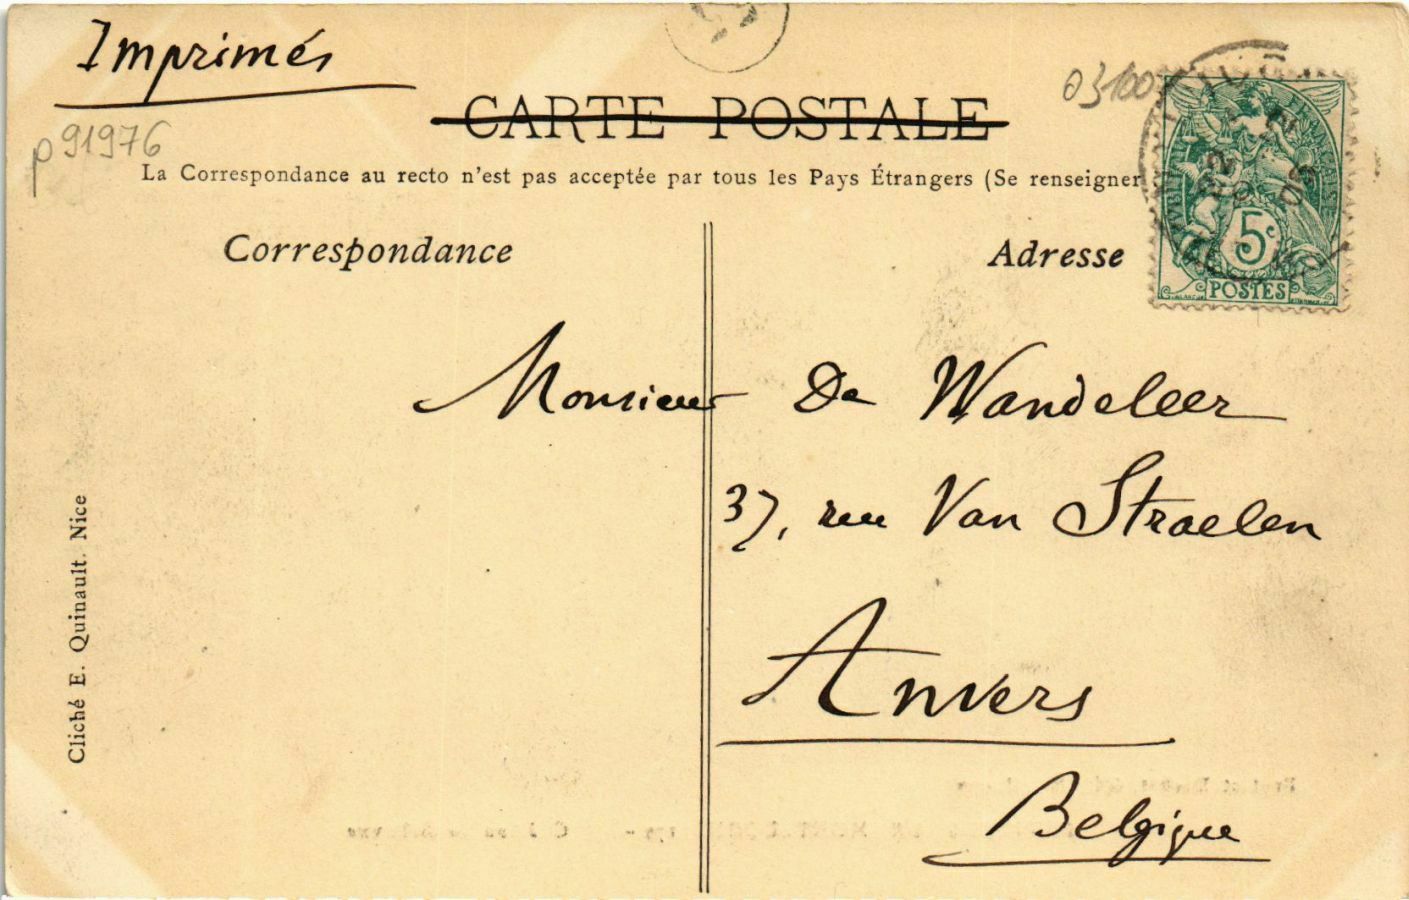 Imprimés
CARTE POSTALE
03100
p 91976
La Correspondance au recto n'est pas acceptée par tous les Pays Étrangers (Se renseigner
Correspondance
Adresse
5c
POSTES
Monsieur De Wandeleer
37, rue Van Straelen
Anvers
Belgique
Cliché E. Quinault. Nice